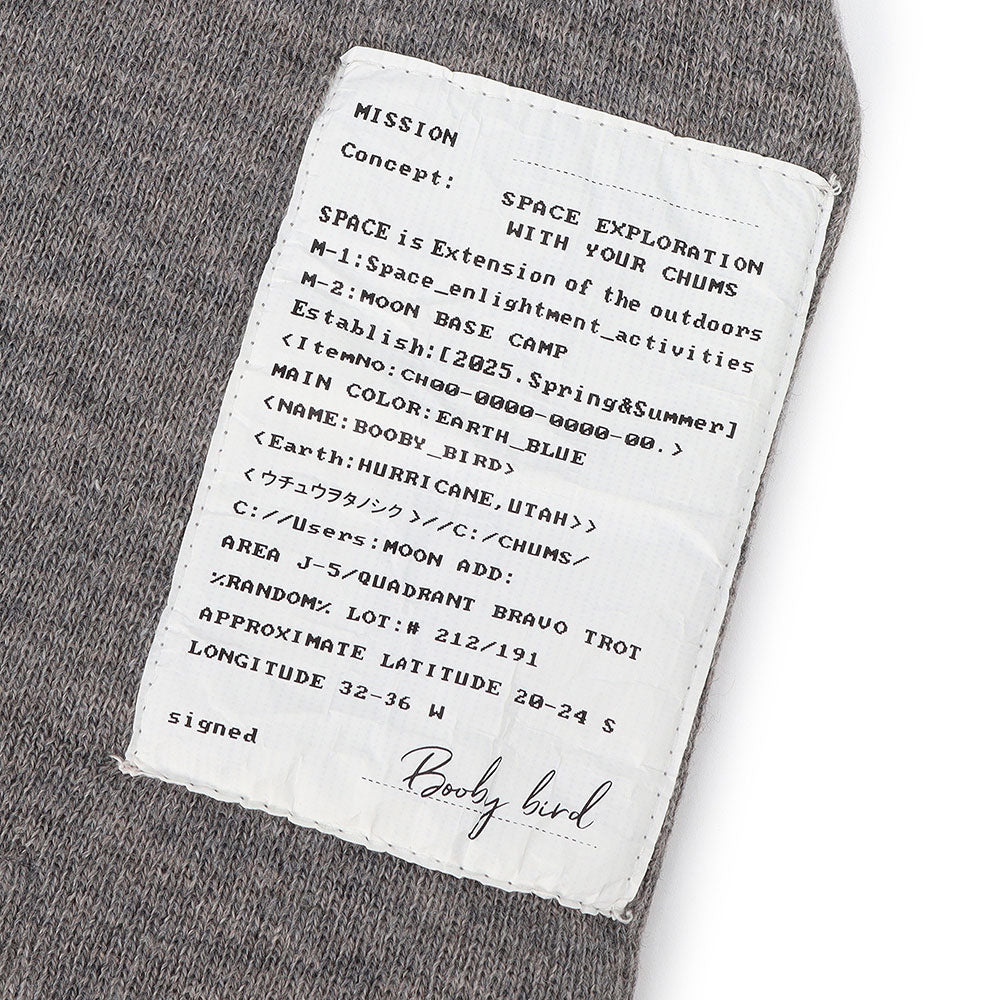 MISSION
Concept:
SPACE EXPLORATION
WITH YOUR CHUMS
SPACE is Extension of the outdoors
M-1:Space_enlightment_activities
M-2:MOON BASE CAMP
Establish:[2025.Spring&Summer]
<ItemNo:CH00-0000-0000-00.>
MAIN COLOR:EARTH_BLUE
<NAME:BOOBY_BIRD>
<Earth:HURRICANE,UTAH>>
<ウチュウヲタノシク>//C:/CHUMS/
C://Users:MOON ADD:
AREA J-5/QUADRANT BRAVO TROT
%RANDOM% LOT:# 212/191
APPROXIMATE LATITUDE 20-24 S
LONGITUDE 32-36 W
signed
Booby bird